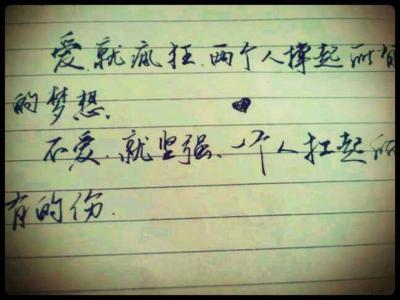 爱.就疯狂.两个人撑起所有
的梦想.
不爱.就坚强.一个人扛起所
有的伤.